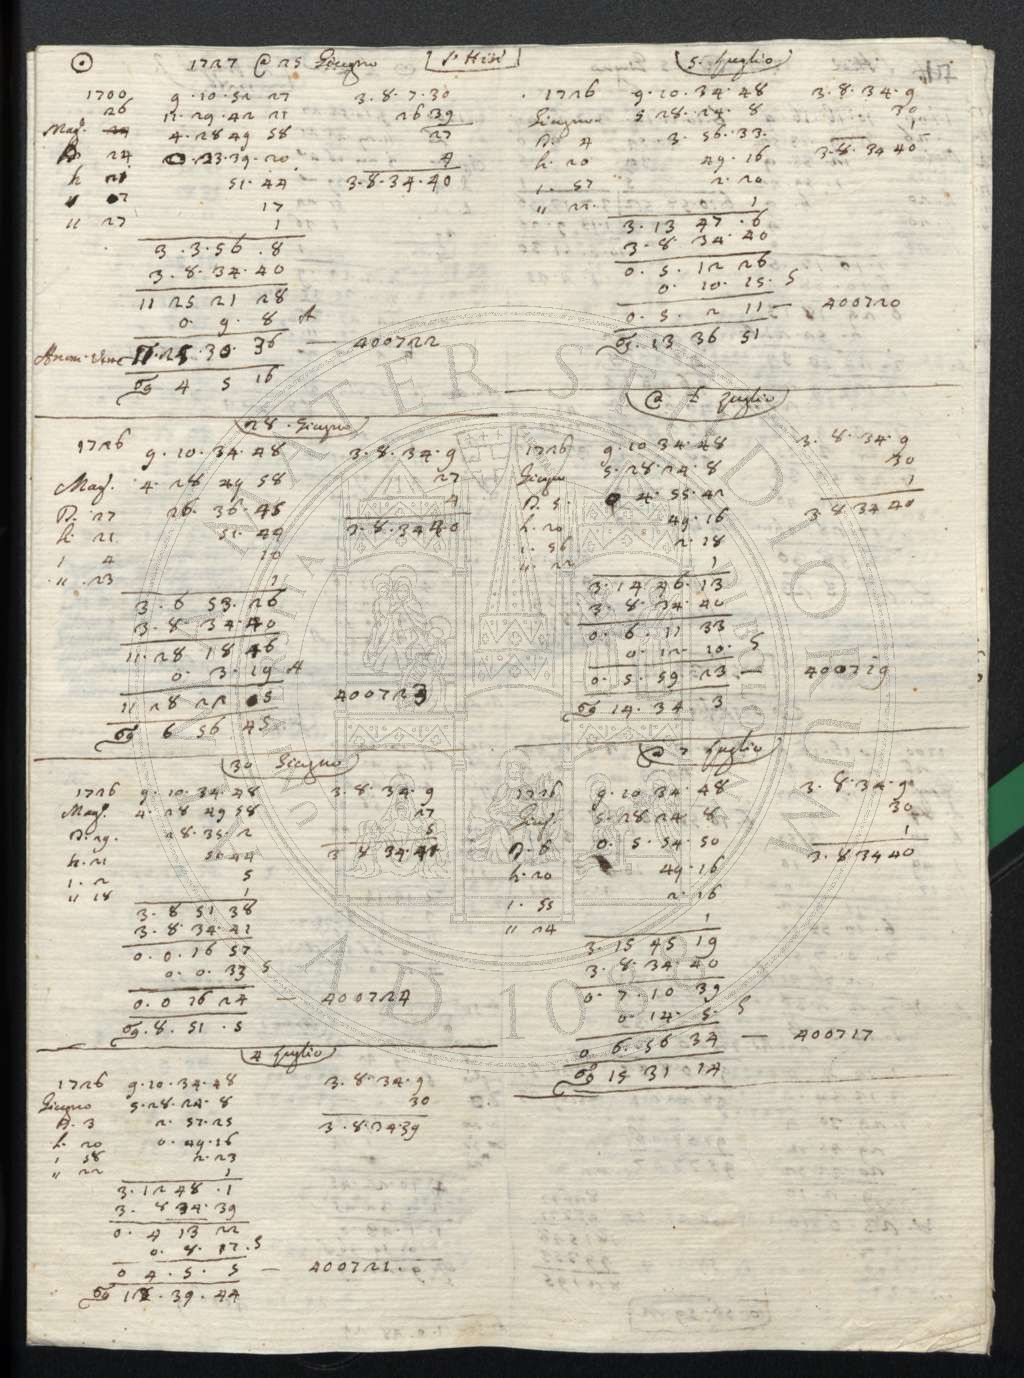 ☉ 1727 @ 25 Giugno
1700 9·10·52 27 3·8·7·30
26 11·29·42 21 26 39
Mag. 4·28 49 58 27
D. 24 23·39·20 4
h 21 51·44 3·8·34·40
17
11 27 1
3·3·56·8
3·8·34·40
11 25 21 28
0·9·8 A
11·25·30·36 — 400722
4 5 16
28·Giugno
1726 9·10·34·48 3·8·34·9
Mag. 4·28 49 58 27
D. 27 26·36·45 4
h. 21 51·44 3·8·34 40
1 4 10
11·23 1
3·6 53·26
3·8·34 40
11·28 18 46
0·3·19 A
11 28 22 05 400723
6 56 45
30 Giugno
1726 9·10·34·48 3·8·34·9
Mag. 4·28 49 58 27
D. 29. 28·35·2 5
h. 21 51 44 3 8 34·41
1·2 5
11 18 1
3·8 51 38
3·8·34·41
0·0·16 57
0·0·33 S
0·0 16 24 — 400724
8·51·5
4 Luglio
1726 9·10·34·48 3·8·34·9
Giugno 5·28·24·8 30
D. 3 2·57·25 3·8·34 39
h. 20 0·49·16
1 58 2·23
11 22 1
3·12 48·1
3·8 34·39
0·4 13 22
0·8·17·S
0 4·5·5 — 400721·
12·39·44
5·Luglio
1726 9·10·34·48 3·8·34·9
Giugno 5·28·24·8 30
D. 4 3·56·33· 1
h. 20 49·16 3·8·34 40
1·57 2·20
11 22· 1
3·13 47·6
3·8 34·40
0·5·12 26
0·10·15· S
0·5·2 11 — 400720
13 36 51
@ 6 Luglio
1726 9·10 34·48 3·8·34·9
Giugno 5·28 24·8 30
D. 5· 4·55·42 1
h. 20 49·16 3·8 34 40
1·56 2·18
11 22 1
3·14 46·13
3·8·34·40
0·6·11 33
0·12·10· S
0·5 59 23 — 400719
14·34·3
@ 7 Luglio
1726 9·10 34·48 3·8·34·9
Giug. 5·28 24·8 30
D. 6 0·5·54·50 1
h·20 49·16 3·8 34 40
1·55 2·16
11 24 1
3·15 45 19
3·8·34·40
0·7·10 39
0·14·5· S
0 6·56 34 — 400717
15 31 14
ALMA MATER STUDIORUM
A.D. 1088